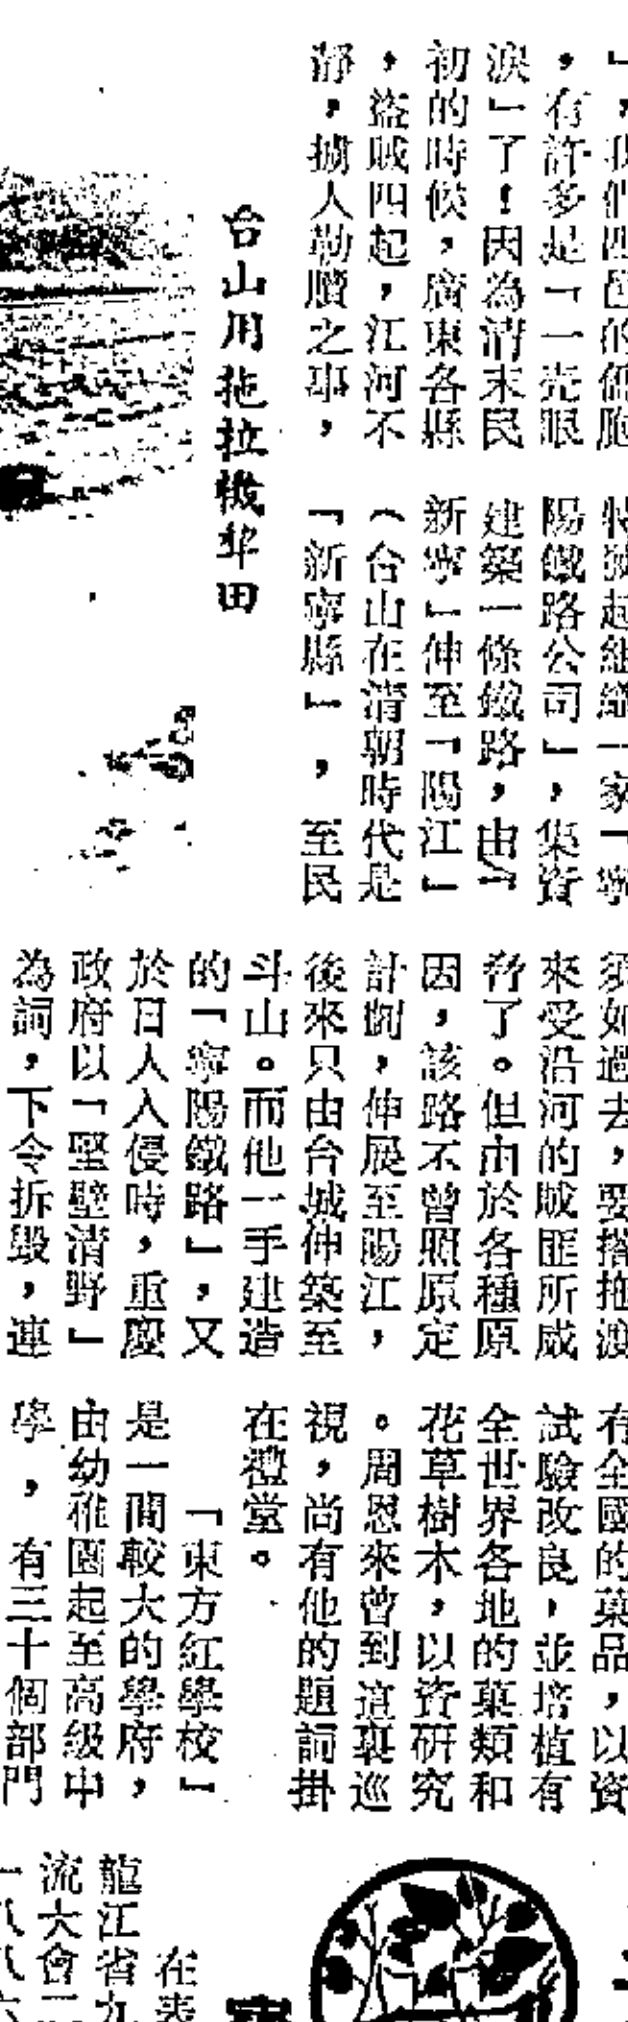 」，我們四邑的僑胞
，有許多是「一壳眼
淚」了！因為清末民
初的時候，廣東各縣
，盜賊四起，江河不
靜，擄人勒贖之事，
台山用拖拉機犂田
起組織一家「寧
陽鐵路公司」，集資
建築一條鐵路，由「
新寧」伸至「陽江」
（台山在清朝時代是
「新寧縣」，至民
須如過去，要搭拖渡
來受沿河的賊匪所威
脅了。但由於各種原
因，該路不曾照原定
計劃，伸展至陽江，
後來只由台城伸築至
斗山。而他一手建造
的「寧陽鐵路」，又
於日人入侵時，重慶
政府以「堅壁清野」
為詞，下令拆毀，連
有全國的菓品，以資
試驗改良，並培植有
全世界各地的菓類和
花草樹木，以資研究
。周恩來曾到這裏巡
視，尚有他的題詞掛
在禮堂。
「東方紅學校」
是一間較大的學府，
由幼稚園起至高級中
學，有三十個部門
在表
龍江省九
流大會
一八八六